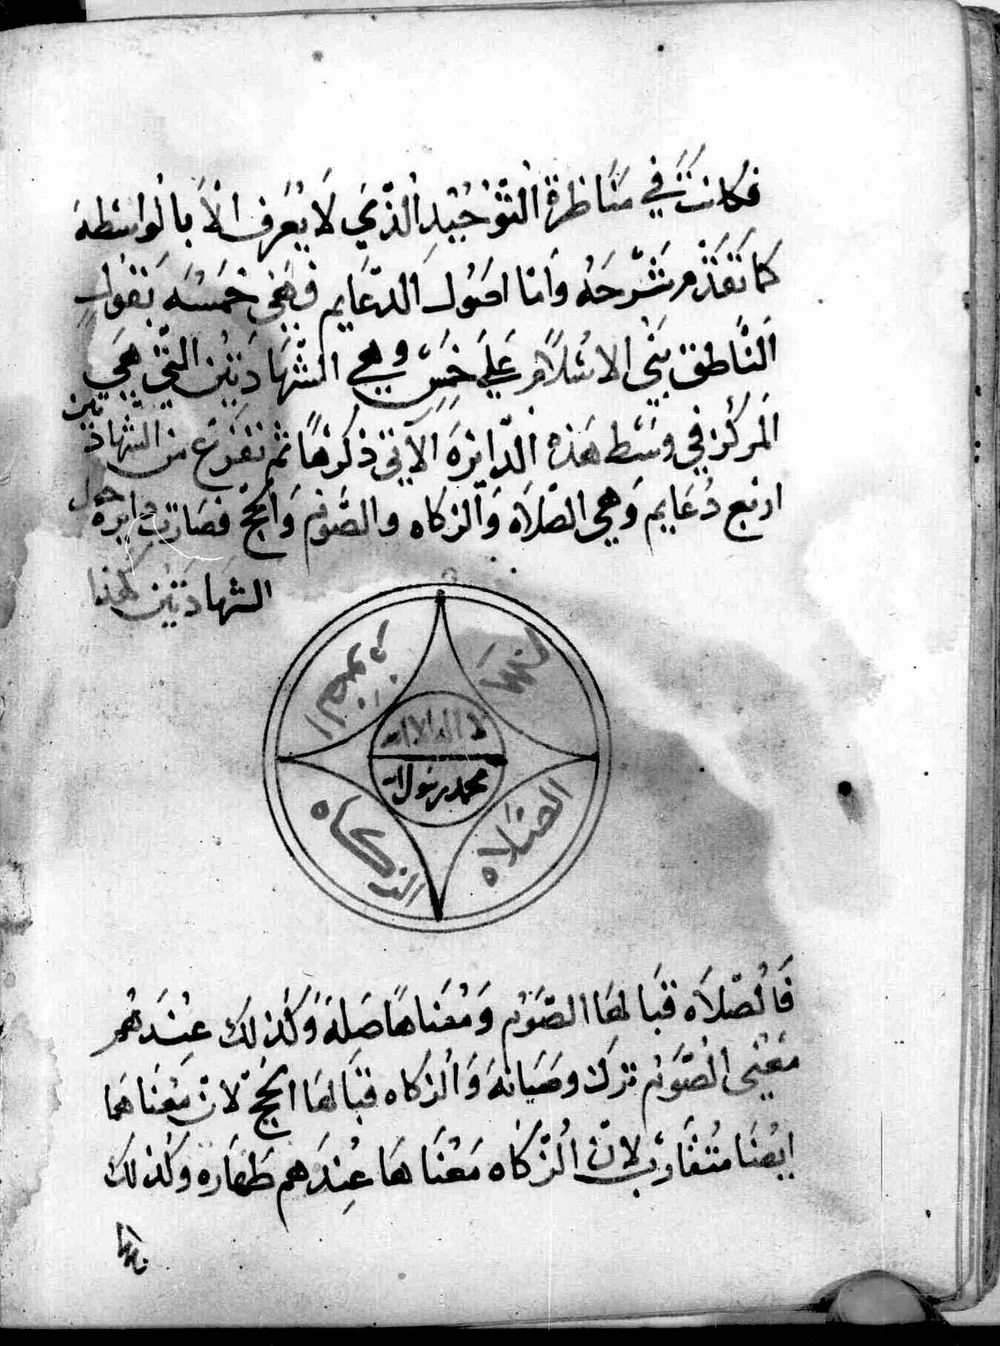 فكانت في مناظرة التوحيد الذي لا يعرف الا بالواسطه
كما تقدم شرحه واما اصول الدعايم فهي خمسه بقول
الناطق بني الاسلام علي خمس وهي الشهادتين التي هي
المركز في وسط هذه الدايرة الآتي ذكرها ثم تفرع من الشهادتين
اربع دعايم وهي الصلاة والزكاه والصوم والحج فصارت دايرة حول
الشهادتين هكذا
لا اله الا الله
محمد رسول الله
الصلاه
الزكاه
فالصلاه قبالها الصوم ومعناها صله وكذلك عندهم
معني الصوم ترك وصيانه والزكاه قبالها الحج لان معناهما
ايضا متقارب لان الزكاه معناها عندهم طهاره وكذلك